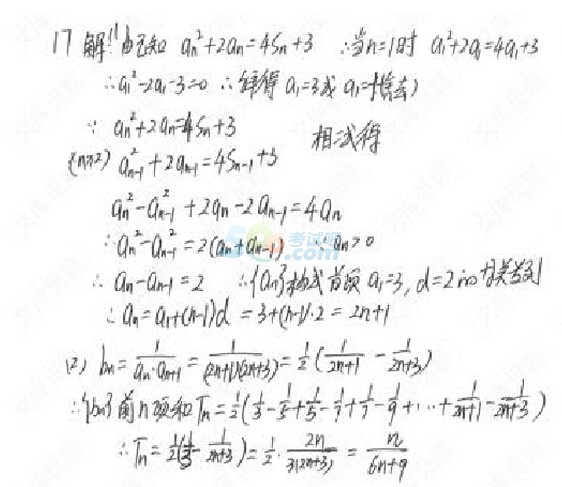 17 解:(1)由已知 aₙ²+2aₙ=4Sₙ+3 ∴当n=1时 a₁²+2a₁=4a₁+3
∴a₁²-2a₁-3=0 ∴解得 a₁=3或 a₁=-1(舍去)
∵ aₙ²+2aₙ=4Sₙ+3
(n≥2) aₙ₋₁²+2aₙ₋₁=4Sₙ₋₁+3 相减得
aₙ²-aₙ₋₁²+2aₙ-2aₙ₋₁=4aₙ
∴aₙ²-aₙ₋₁²=2(aₙ+aₙ₋₁) ∵aₙ>0
∴ aₙ-aₙ₋₁=2 ∴{aₙ}构成首项 a₁=3, d=2的等差数列
∴aₙ=a₁+(n-1)d=3+(n-1)·2=2n+1
(2) bₙ=1/(aₙ·aₙ₊₁)=1/((2n+1)(2n+3))=1/2(1/(2n+1)-1/(2n+3))
∴{bₙ}前n项和Tₙ=1/2(1/3-1/5+1/5-1/7+1/7-1/9+···+1/(2n+1)-1/(2n+3))
∴Tₙ=1/2(1/3-1/(2n+3))=1/2·2n/(3(2n+3))=n/(6n+9)